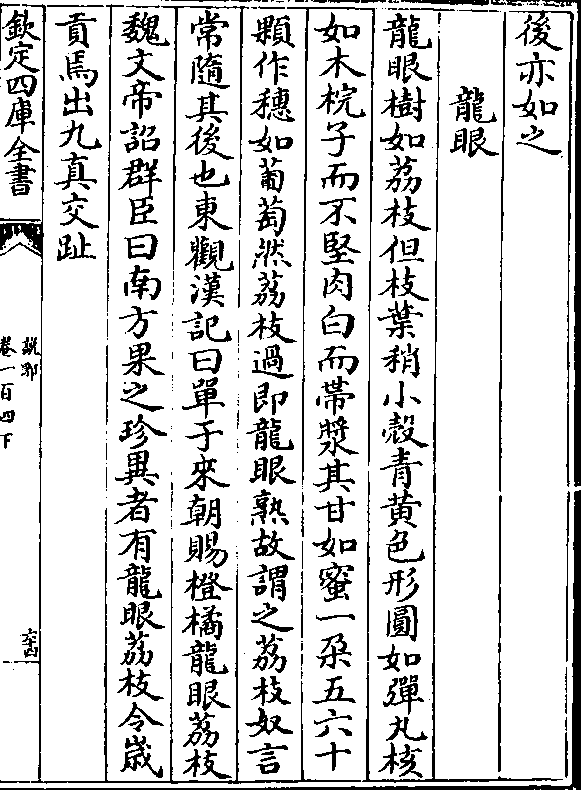 後亦如之
龍眼
龍眼樹如荔枝但枝葉稍小殼青黃色形圓如彈丸核
如木梡子而不堅肉白而帶漿其甘如蜜一朶五六十
顆作穗如葡萄然荔枝過即龍眼熟故謂之荔枝奴言
常隨其後也東觀漢記曰單于來朝賜橙橘龍眼荔枝
魏文帝詔群臣曰南方果之珍異者有龍眼荔枝令歲
貢焉出九真交趾
欽定四庫全書
說郛
卷一百四下
六十四